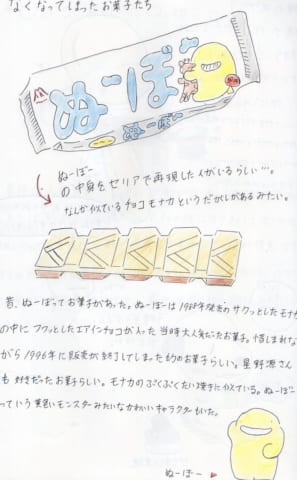 なくなってしまったお菓子たち
ぬーぼー
ぬーぼー
ぬーぼー
の中身をセリアで再現した人がいるらしい…。
なんか似ているチョコモナカというだがしがあるみたい。
昔、ぬーぼーってお菓子があった。ぬーぼーは1988年発売のサクッとしたモナカ
の中にフワッとしたエアインチョコが入った当時大人気だったお菓子。惜しまれな
がら1996年に販売が終了してしまった幻のお菓子らしい。星野源さん
も好きだったお菓子らしい。モナカのぷくぷくたい焼きに似ている。ぬーぼー
っていう黄色いモンスターみたいなかわいいキャラクターもいた。
ぬーぼー